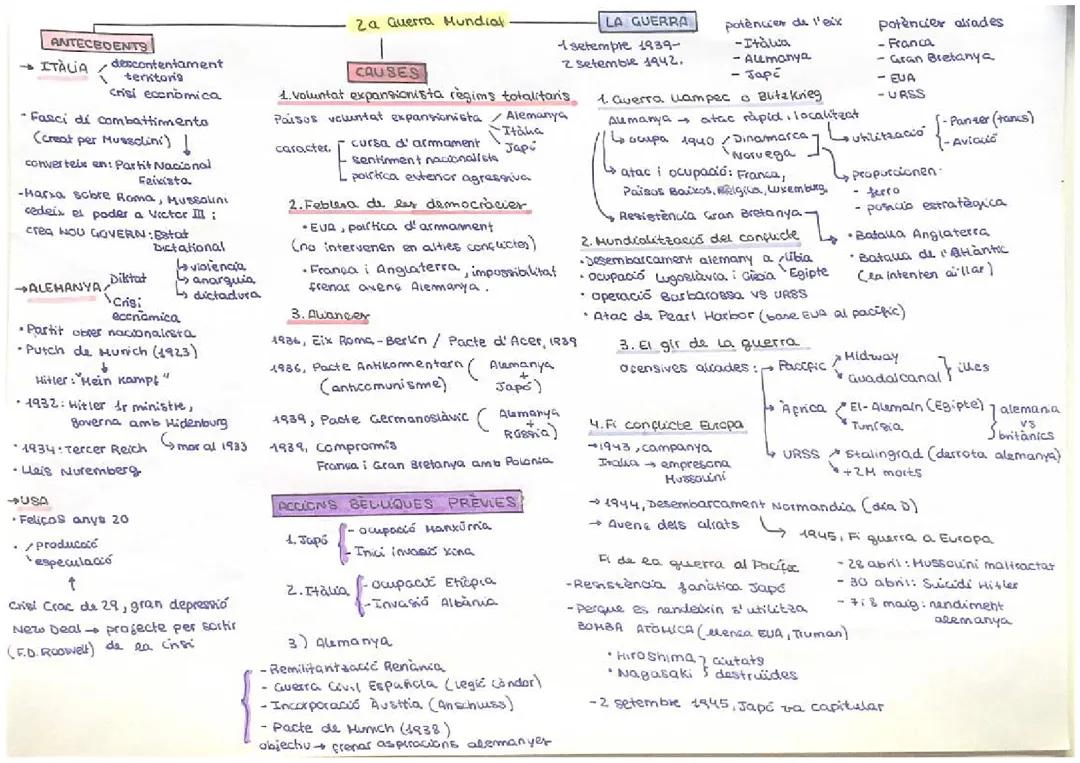 2a Guerra Mundial
ANTECEDENTS
→ ITÀLIA
descontentament
territoris
crisi econòmica
- Fasci di combattimento
(creat per Mussolini)
converteix en: Partit Nacional
Feixista
- Marxa sobre Roma, Mussolini
cedeix el poder a Victor III i
crea NOU GOVERN: Estat
Dictatorial
→ violència
→ anarquia
→ dictadura
→ ALEMANYA
Diktat
Crisi
econòmica
• Partit obrer nacionalista
• Putch de Munich (1923)
Hitler: "Mein Kampf"
• 1932: Hitler 1r ministre,
governa amb Hidenburg
→ mor al 1933
• 1934: Tercer Reich
• Lleis Nuremberg
→ USA
• Feliços anys 20
• producció
especulació
↑
Crisi Crac de 29, gran depressió
New Deal → projecte per sortir
(F.D. Roosvelt) de la crisi
CAUSES
1. Voluntat expansionista règims totalitaris
Països voluntat expansionista
Alemanya
Itàlia
Japó
caràcter
cursa d'armament
sentiment nacionalista
política exterior agressiva
2. Feblesa de les democràcies
• EUA, política d'armament
(no intervenen en altres conflictes)
• França i Anglaterra, impossibilitat
frenar avenç Alemanya.
3. Aliances
1936, Eix Roma-Berlín / Pacte d'Acer, 1939
1936, Pacte Antikomintern (Alemanya
+
Japó)
(anticomunisme)
1939, Pacte Germanoslàvic (Alemanya
+
Rússia)
1939, Compromís
França i Gran Bretanya amb Polònia
ACCIONS BÈL·LIQUES PRÈVIES
1. Japó
- ocupació Manxúria
- Inici invasió Xina
2. Itàlia
- ocupació Etiòpia
- Invasió Albània
3) Alemanya
- Remilitarització Renània
- Guerra Civil Española (legió Còndor)
- Incorporació Àustria (Anschluss)
- Pacte de Munich (1938)
objectiu → frenar aspiracions alemanyes
LA GUERRA
1 setembre 1939-
2 setembre 1942.
potències de l'eix
- Itàlia
- Alemanya
- Japó
potències aliades
- França
- Gran Bretanya
- EUA
- URSS
1. Guerra llampec o Blitzkrieg
Alemanya → atac ràpid i localitzat
→ ocupa 1940
Dinamarca
Noruega
→ utilització
- Panzer (tancs)
- Aviació
→ proporcionen:
- ferro
- posició estratègica
→ atac i ocupació: França,
Països Baixos, Bèlgica, Luxemburg.
→ Resistència Gran Bretanya
• Batalla Anglaterra
• Batalla de l'Atlàntic
(la intenten aïllar)
2. Mundialització del conflicte
• Desembarcament alemany a Líbia
Egipte
• ocupació Iugoslàvia i Grècia
• operació Barbarossa VS URSS
• Atac de Pearl Harbor (base EUA al pacífic)
3. El gir de la guerra
Ofensives aliades:
→ Pacífic
Midway
Guadalcanal
illes
→ Àfrica
El-Alamein (Egipte)
Tunísia
alemania
vs
britànics
→ URSS
Stalingrad (derrota alemanya)
+2M morts
4. Fi conflicte Europa
→ 1943, campanya
Itàlia → empresona
Mussolini
→ 1944, Desembarcament Normandia (dia D)
→ Avenç dels aliats
→ 1945, Fi guerra a Europa
- 28 abril: Mussolini maltractar
- 30 abril: Suïcidi Hitler
- 7 i 8 maig: rendiment
alemanya
Fi de la guerra al Pacífic
- Resistència fanàtica Japó
- Perque es rendeixin s'utilitza
BOMBA ATÒMICA (llença EUA, Truman)
• Hiroshima
• Nagasaki
ciutats
destruïdes
- 2 setembre 1945, Japó va capitular